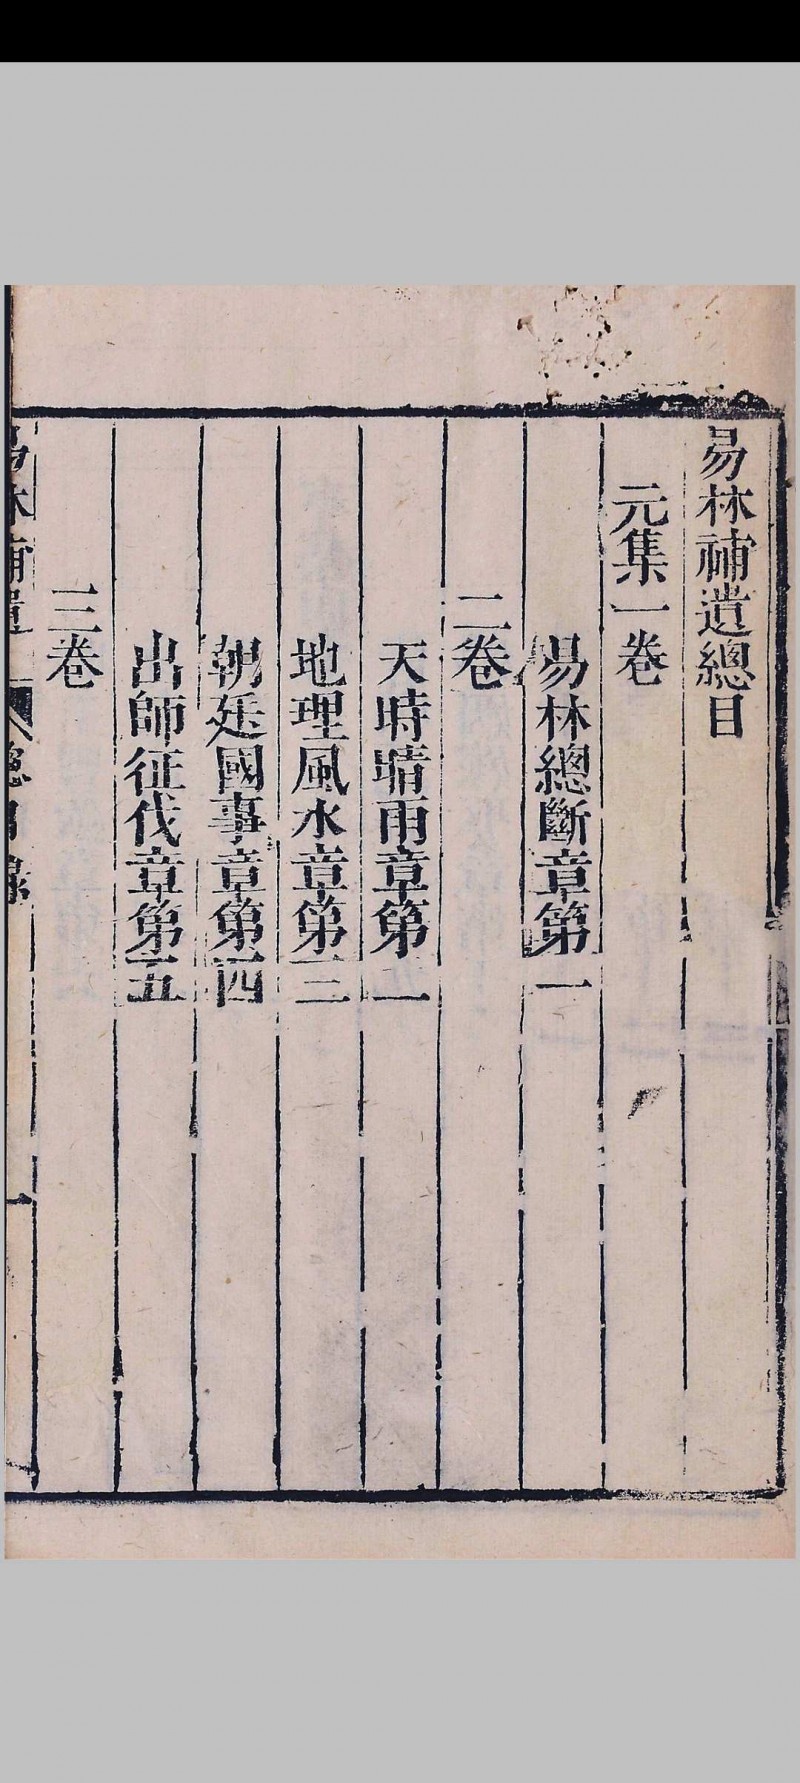 易林補遺總目
元集一卷
易林總斷章第一
二卷
天時晴雨章第二
地理風水章第三
朝廷國事章第四
出師征伐章第五
三卷
易林補遺
總目錄
一